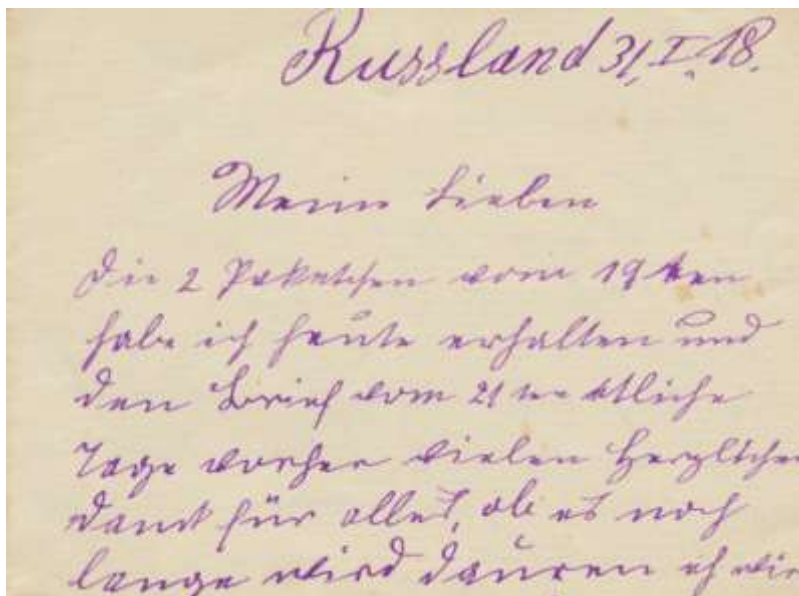 Russland 31. I. 18.
Meine Lieben
Die 2 Paketchen vom 19 ten
habe ich heute erhalten und
den Brief vom 21 ten etliche
Tage vorher vielen Herzlichen
Dank für alles, ob es noch
lange wird dauren ich wir